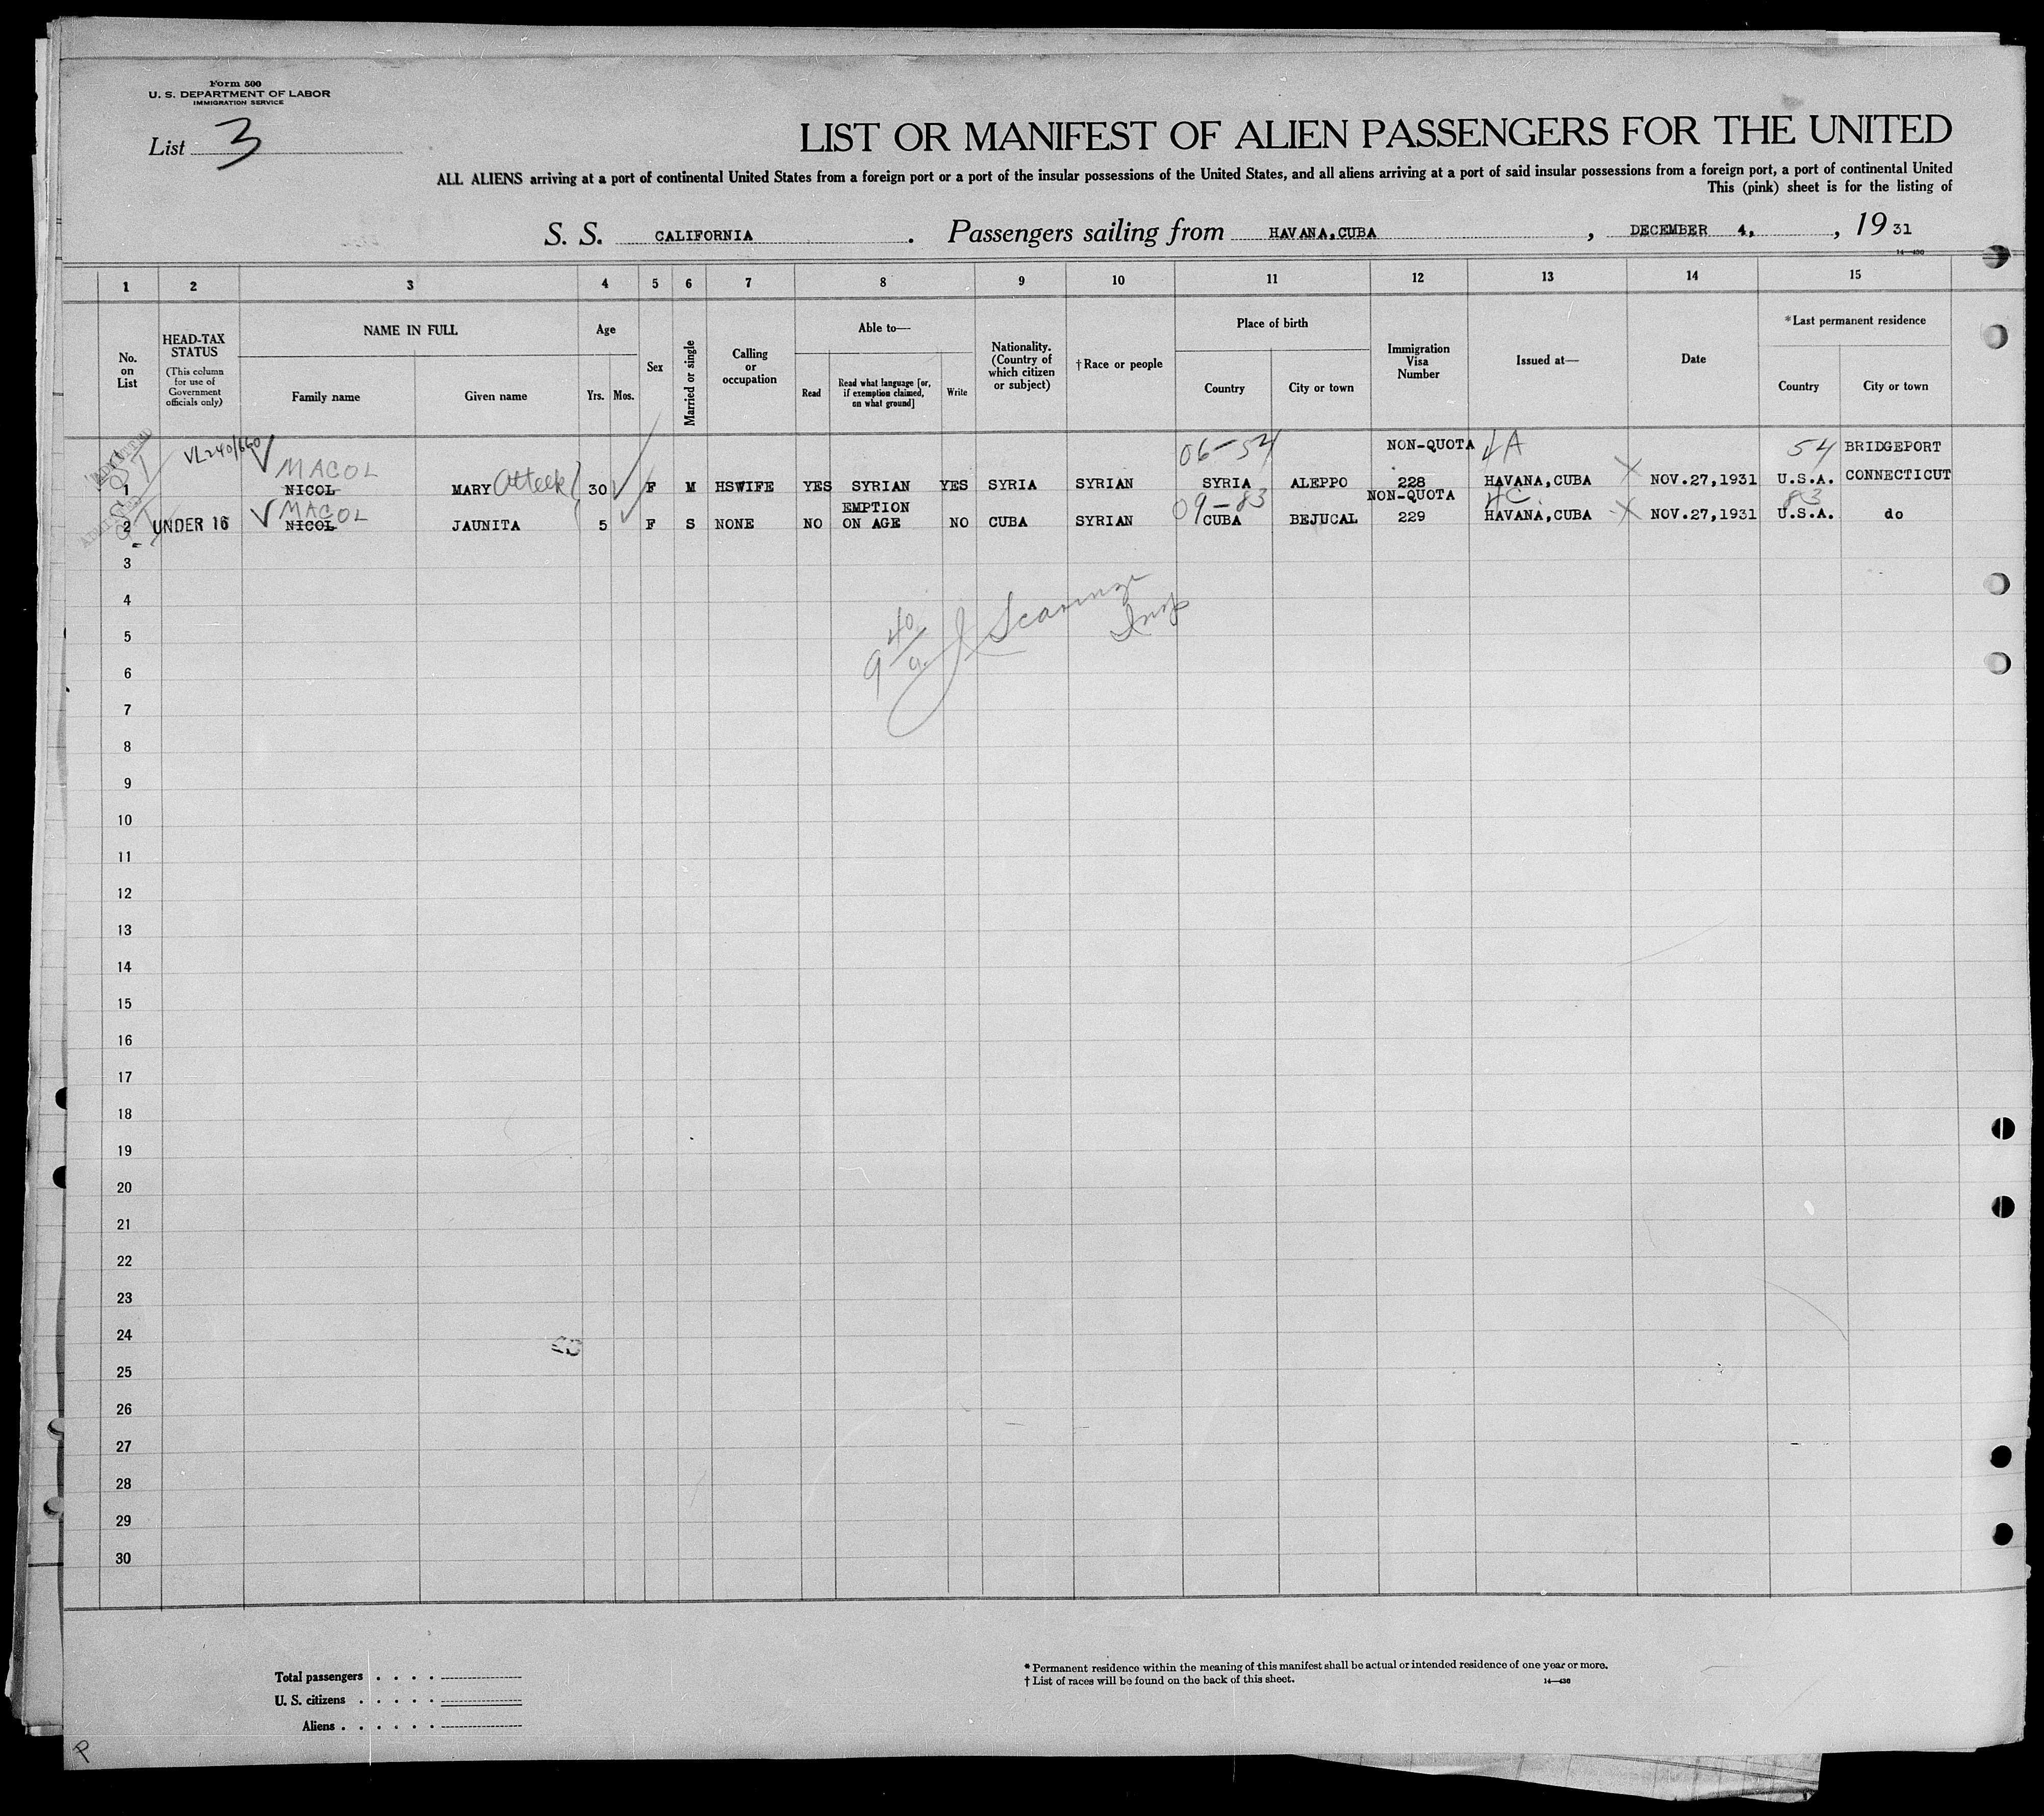 Form 500
U. S. DEPARTMENT OF LABOR
IMMIGRATION SERVICE
List 3
LIST OR MANIFEST OF ALIEN PASSENGERS FOR THE UNITED
ALL ALIENS arriving at a port of continental United States from a foreign port or a port of the insular possessions of the United States, and all aliens arriving at a port of said insular possessions from a foreign port, a port of continental United
This (pink) sheet is for the listing of
S. S. CALIFORNIA . Passengers sailing from HAVANA,CUBA , DECEMBER 4, , 19 31
14—430
1 2 3 4 5 6 7 8 9 10 11 12 13 14 15
No. on List
HEAD-TAX STATUS
(This column for use of Government officials only)
NAME IN FULL
Family name
Given name
Age
Yrs. Mos.
Sex
Married or single
Calling or occupation
Able to—
Read
Read what language [or, if exemption claimed, on what ground]
Write
Nationality. (Country of which citizen or subject)
† Race or people
Place of birth
Country
City or town
Immigration Visa Number
Issued at—
Date
*Last permanent residence
Country
City or town
VL240/660 06-54 NON-QUOTA 4A 54 BRIDGEPORT
MACOL
1 NICOL MARY Atteek 30 F M HSWIFE YES SYRIAN YES SYRIA SYRIAN SYRIA ALEPPO 228 HAVANA,CUBA NOV.27,1931 U.S.A. CONNECTICUT
MACOL EMPTION 09-83 NON-QUOTA 4C 83
2 UNDER 16 NICOL JAUNITA 5 F S NONE NO ON AGE NO CUBA SYRIAN CUBA BEJUCAL 229 HAVANA,CUBA NOV.27,1931 U.S.A. do
3
4
5
6
7
8
9
10
11
12
13
14
15
16
17
18
19
20
21
22
23
24
25
26
27
28
29
30
9 40/a
Insp
Total passengers . . . .
U. S. citizens . . . . .
Aliens . . . . . .
* Permanent residence within the meaning of this manifest shall be actual or intended residence of one year or more.
† List of races will be found on the back of this sheet.
14—430
P